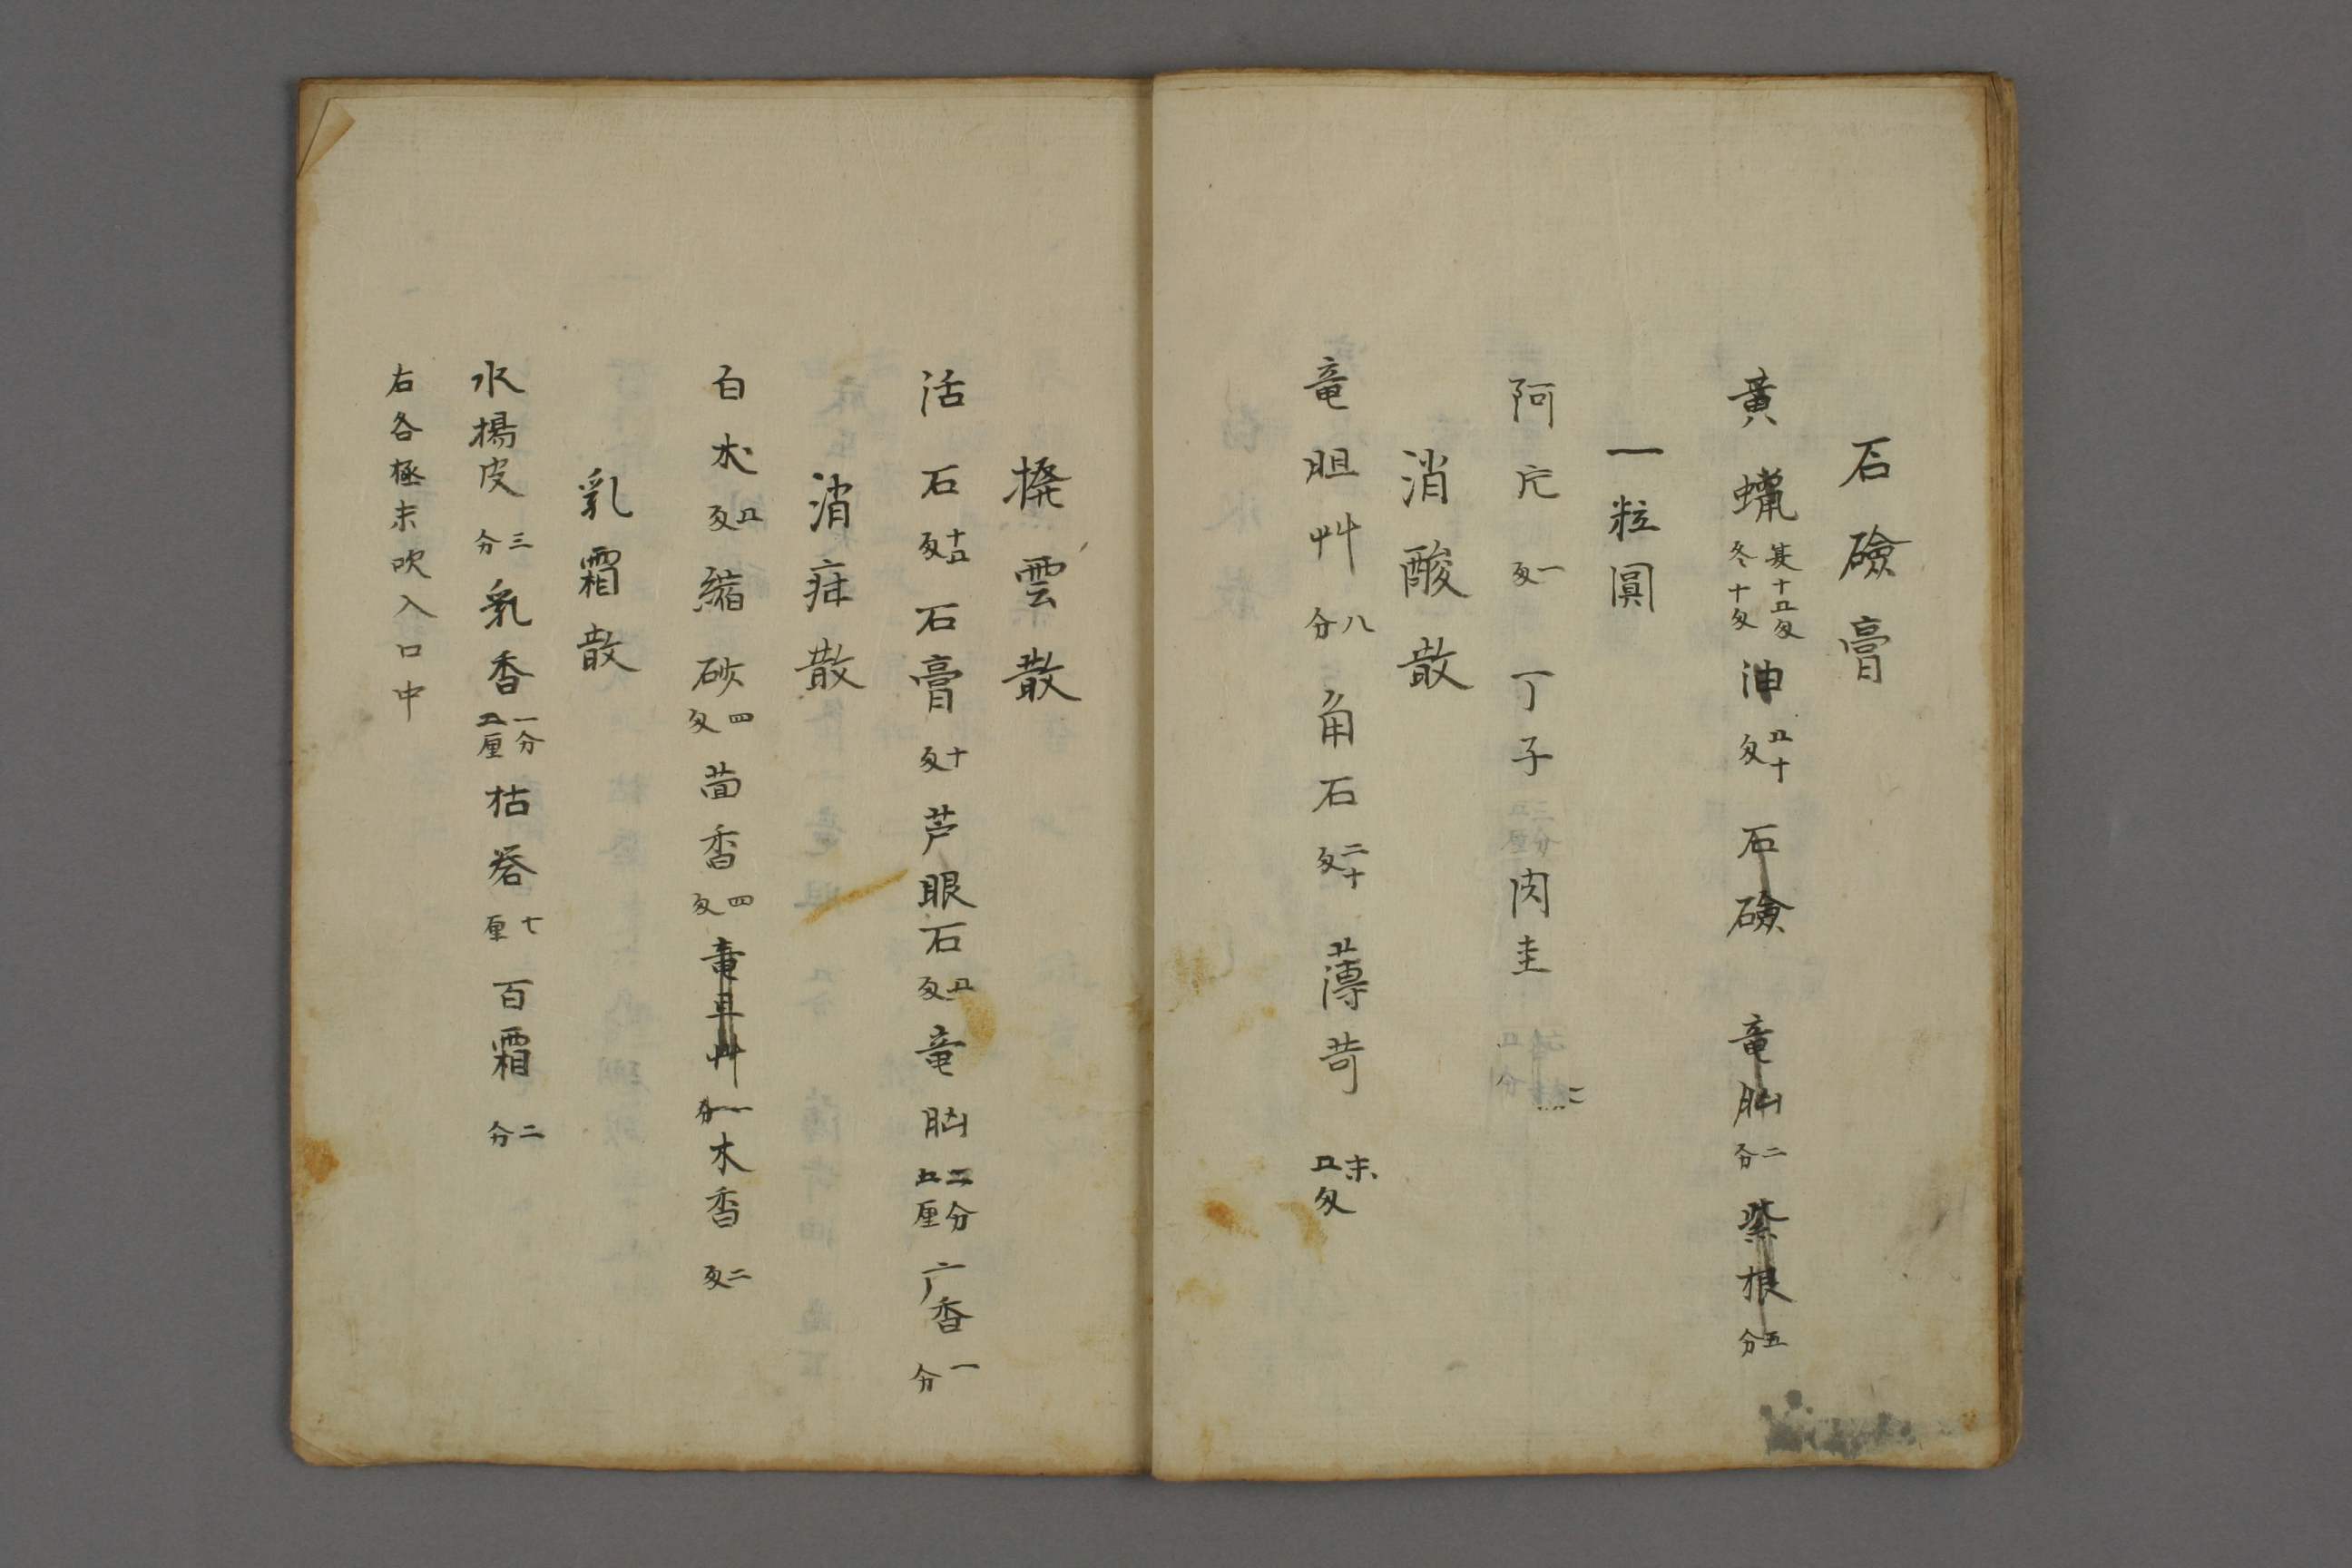 石礆膏
黄蠟 夏十五匁 冬十匁 油 五十匁 石礆 竜脳 二分 紫根 五分
一粒圓
阿片 一匁 丁子 肉圭
消酸散
竜胆艸 八分 角石 二十匁 薄苛 末五匁
撥雲散
活石 十五匁 石膏 十匁 芦眼石 五匁 竜脳 二分五厘 广香 一分
消疳散
白朮 五匁 縮砂 四匁 茴香 四匁 竜胆艸 一分 木香 二匁
乳霜散
水楊皮 三分 乳香 一分五厘 枯礬 七厘 百霜 二分
右各極末吹入口中